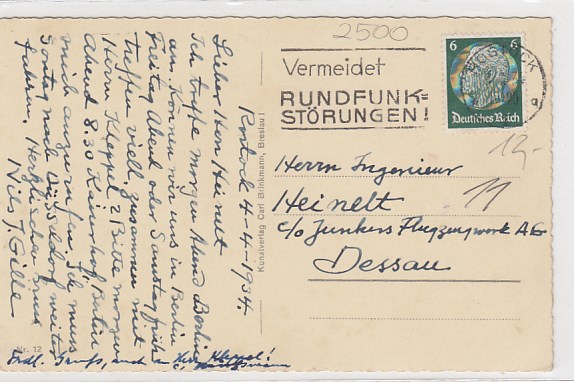 2500
Vermeidet
RUNDFUNK=
STÖRUNGEN!
6 6
Deutsches Reich
ROSTOCK
12,-
11
Herrn Ingenieur
Heinelt
c/o Junkers Flugzeugwerk AG
Dessau
Kunstverlag Carl Brinkmann, Breslau I
Nr. 12
Rostock 4-4-1934.
Lieber Herr Heinelt
Ich treffe morgen Abend Berlin
an. Können wir uns in Berlin
Freitag Abend oder Samstag früh
treffen viell. zusammen mit
Herrn Kleppel? Bitte morgen
Abend 8.30 Kaiserhof, Berlin
mich anzurufen. Ich muss
Sontag nach Düsseldorf weiter
fahren. Herzlichen Grus
Nils J. Gille
Frdl. Gruß, auch an Herrn Kleppel!